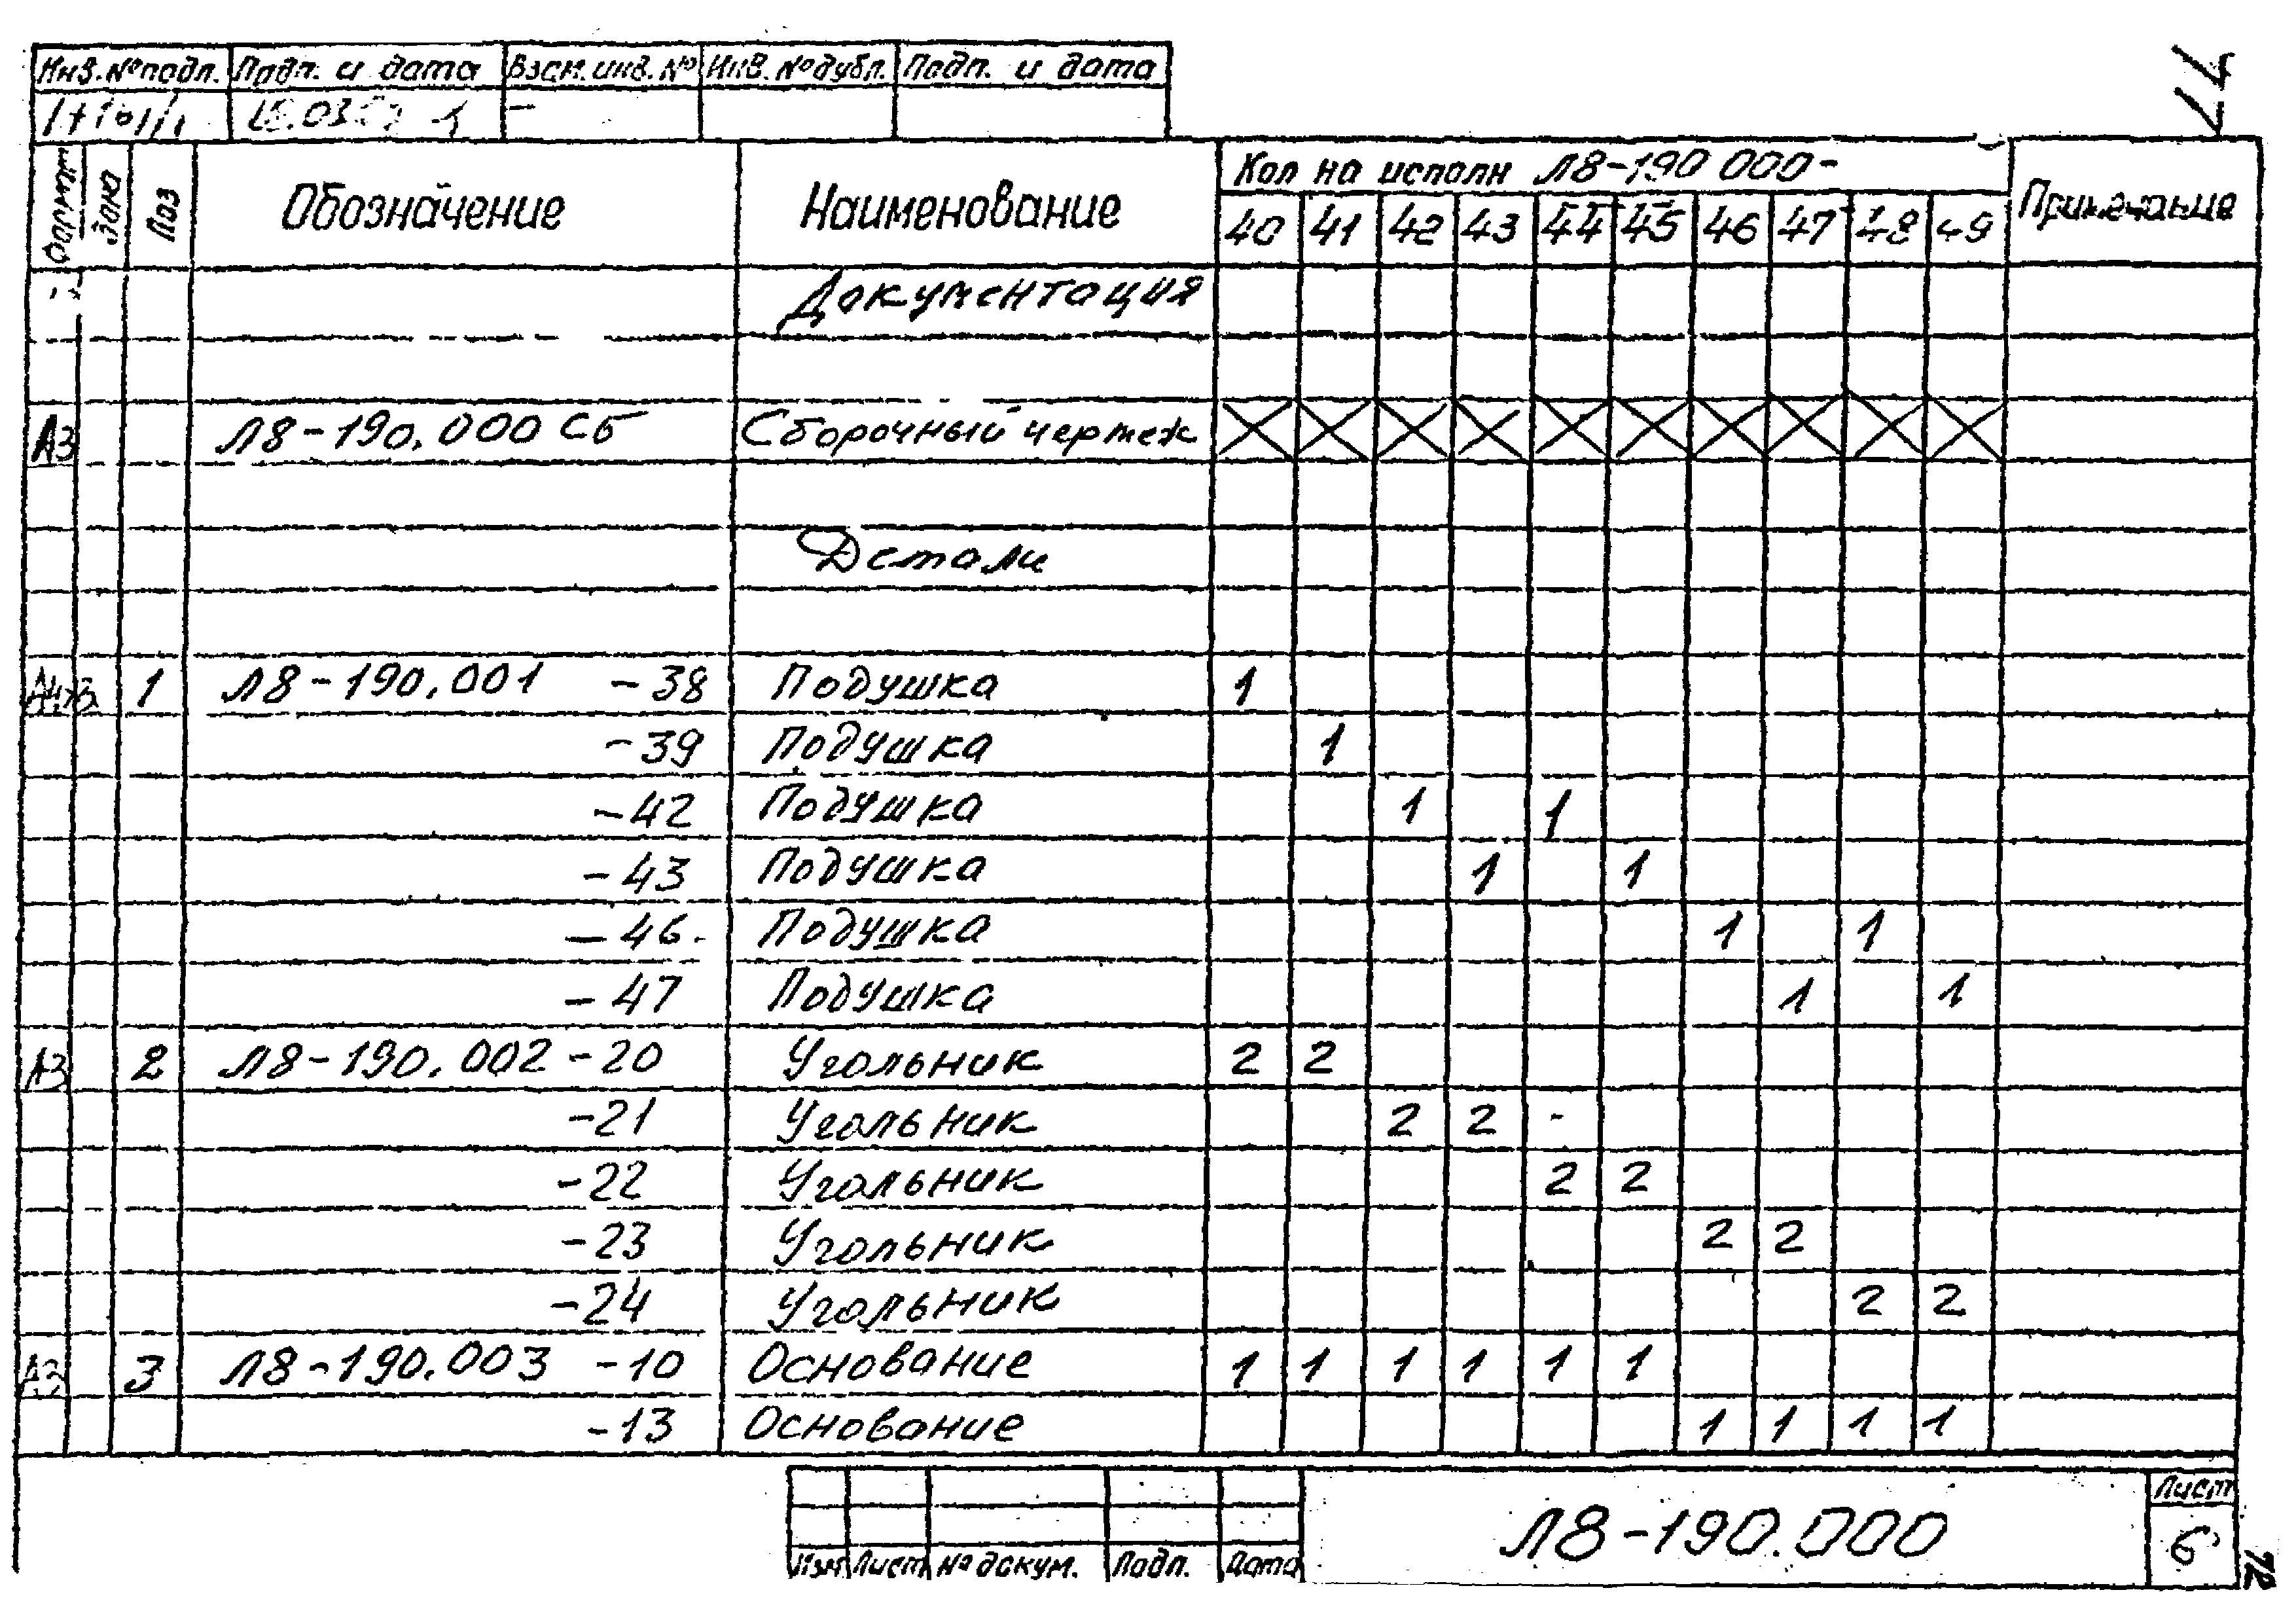 77
Инв.№подл. Подп. и дата Взам.инв.№ Инв.№дубл. Подп. и дата
Формат Зона Поз Обозначение Наименование Кол на исполн Л8-190 000- Примечание
40 41 42 43 44 45 46 47 48 49
Документация
А3 Л8-190.000 СБ Сборочный чертеж
Детали
1 Л8-190.001 -38 Подушка 1
-39 Подушка 1
-42 Подушка 1 1
-43 Подушка 1 1
-46 Подушка 1 1
-47 Подушка 1 1
А3 2 Л8-190.002 -20 Угольник 2 2
-21 Угольник 2 2 -
-22 Угольник 2 2
-23 Угольник 2 2
-24 Угольник 2 2
А3 3 Л8-190.003 -10 Основание 1 1 1 1 1 1
-13 Основание 1 1 1 1
Изм Лист № докум. Подп. Дата
Л8-190.000
Лист
6
72